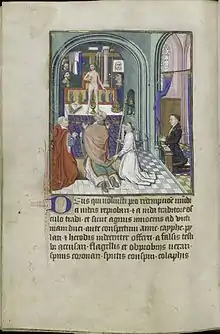 Deus qui voluisti pro redemptione mundi
a iudeis reprobari et a iuda traditore os
culo tradi et sicut agnus innocens ad victi
mam duci ante conspectum anne cayphe py
lati et herodis indecenter offerri a falsis testi
bus accusari flagellis et obprobriis vexari
spinis coronari sputis conspui colaphis